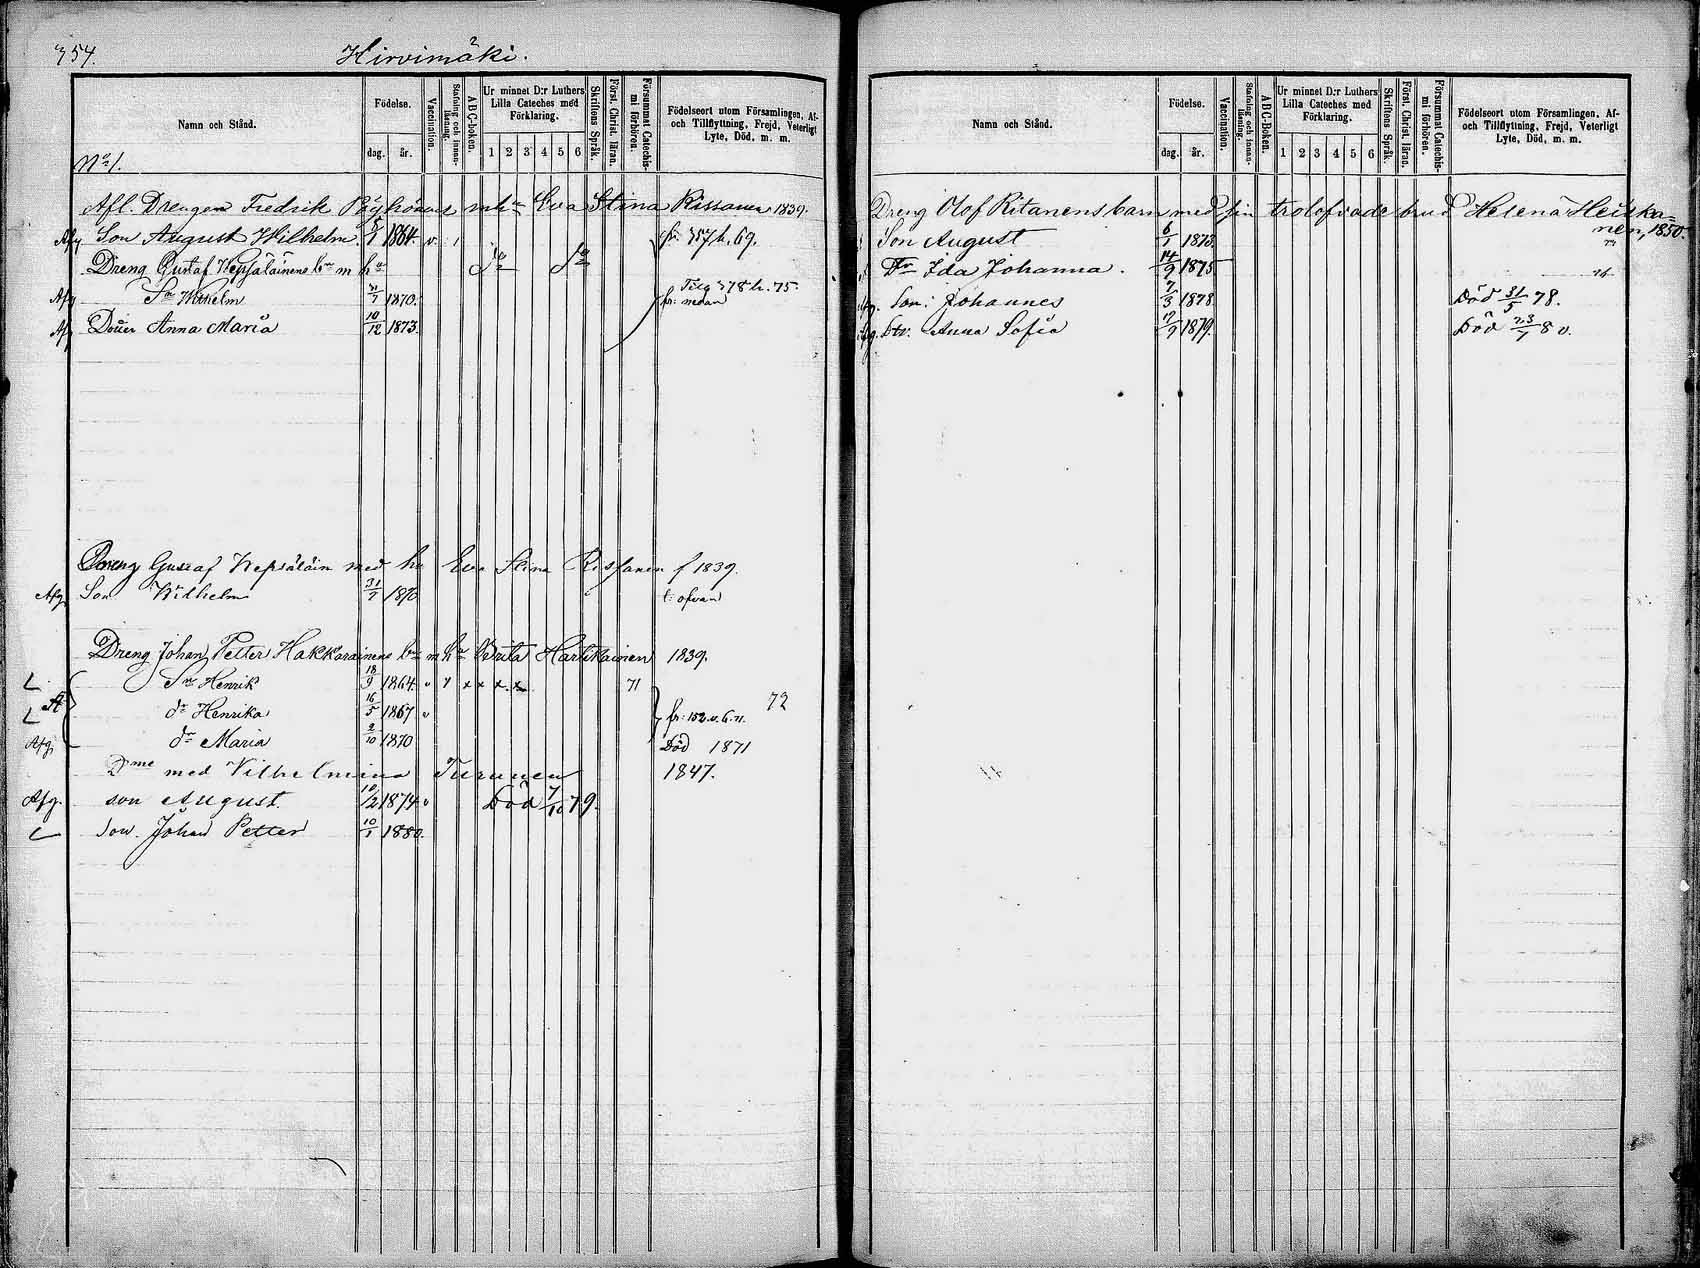 354.
Hirvimäki.
Namn och Stånd.
Födelse.
dag. år.
Vaccination.
Stafning och innan-läsning.
ABC-boken.
Ur minnet D:r Luthers Lilla Cateches med Förklaring.
1 2 3 4 5 6
Skriftens Språk.
Först. Christ. läran.
Försummat Catechis-mi förhören.
Födelseort utom Församlingen, Af- och Tillflyttning, Frejd, Veterligt Lyte, Död, m. m.
No 1.
Afl. Drengen Fredrik mho Eva Stina Rissanen 1839.
Afg Son August Wilhelm. 1864. v 1 fr. 357 h. 69.
Dreng Gustaf Hepsäläinens bn m ho do do
Tilg 378 h. 75.
Afg Sn Wilhelm 31/7 1870. fr: nedan
Afg Doter Anna Maria 10/12 1873.
Dreng Gustaf Hepsäläin med hu Eva Stina Rissanen f 1839.
Afg Son Wilhelm 31/7 1870 t: ofvan
Dreng Johan Petter Hakkarainens bn m ho Brita Hartikainen 1839.
Sn Henrik 18/9 1864. v 1 x x x x 71
dr Henrika 16/5 1867 v fr: 152 v. 6. 71. 72
Afg. dr Maria 2/10 1870 Död 1871
Dme med Vilhelmina Turunen 1847.
Afg. son August. 10/2 1874 v Död 7/10 79.
Son. Johan Petter 10/1 1880.
Namn och Stånd.
Födelse.
dag. år.
Vaccination.
Stafning och innan-läsning.
ABC-Boken.
Ur minnet D:r Luthers Lilla Cateches med Förklaring.
1 2 3 4 5 6
Skriftens Språk.
Först. Christ. läran.
Försummat Catechis-mi förhören.
Födelseort utom Församlingen, Af- och Tillflyttning, Frejd, Veterligt Lyte, Död, m. m.
Dreng Olof Ritanens barn med sin trolofvade brud Helena Heiska=
nen, 1850.
Son August 6/1 1873.
Dr Ida Johanna. 14/9 1875
Son: Johannes 7/3 1878. Död 31/5 78.
Afg. Dtr. Anna Sofia 17/9 1879. Död 23/1 80.